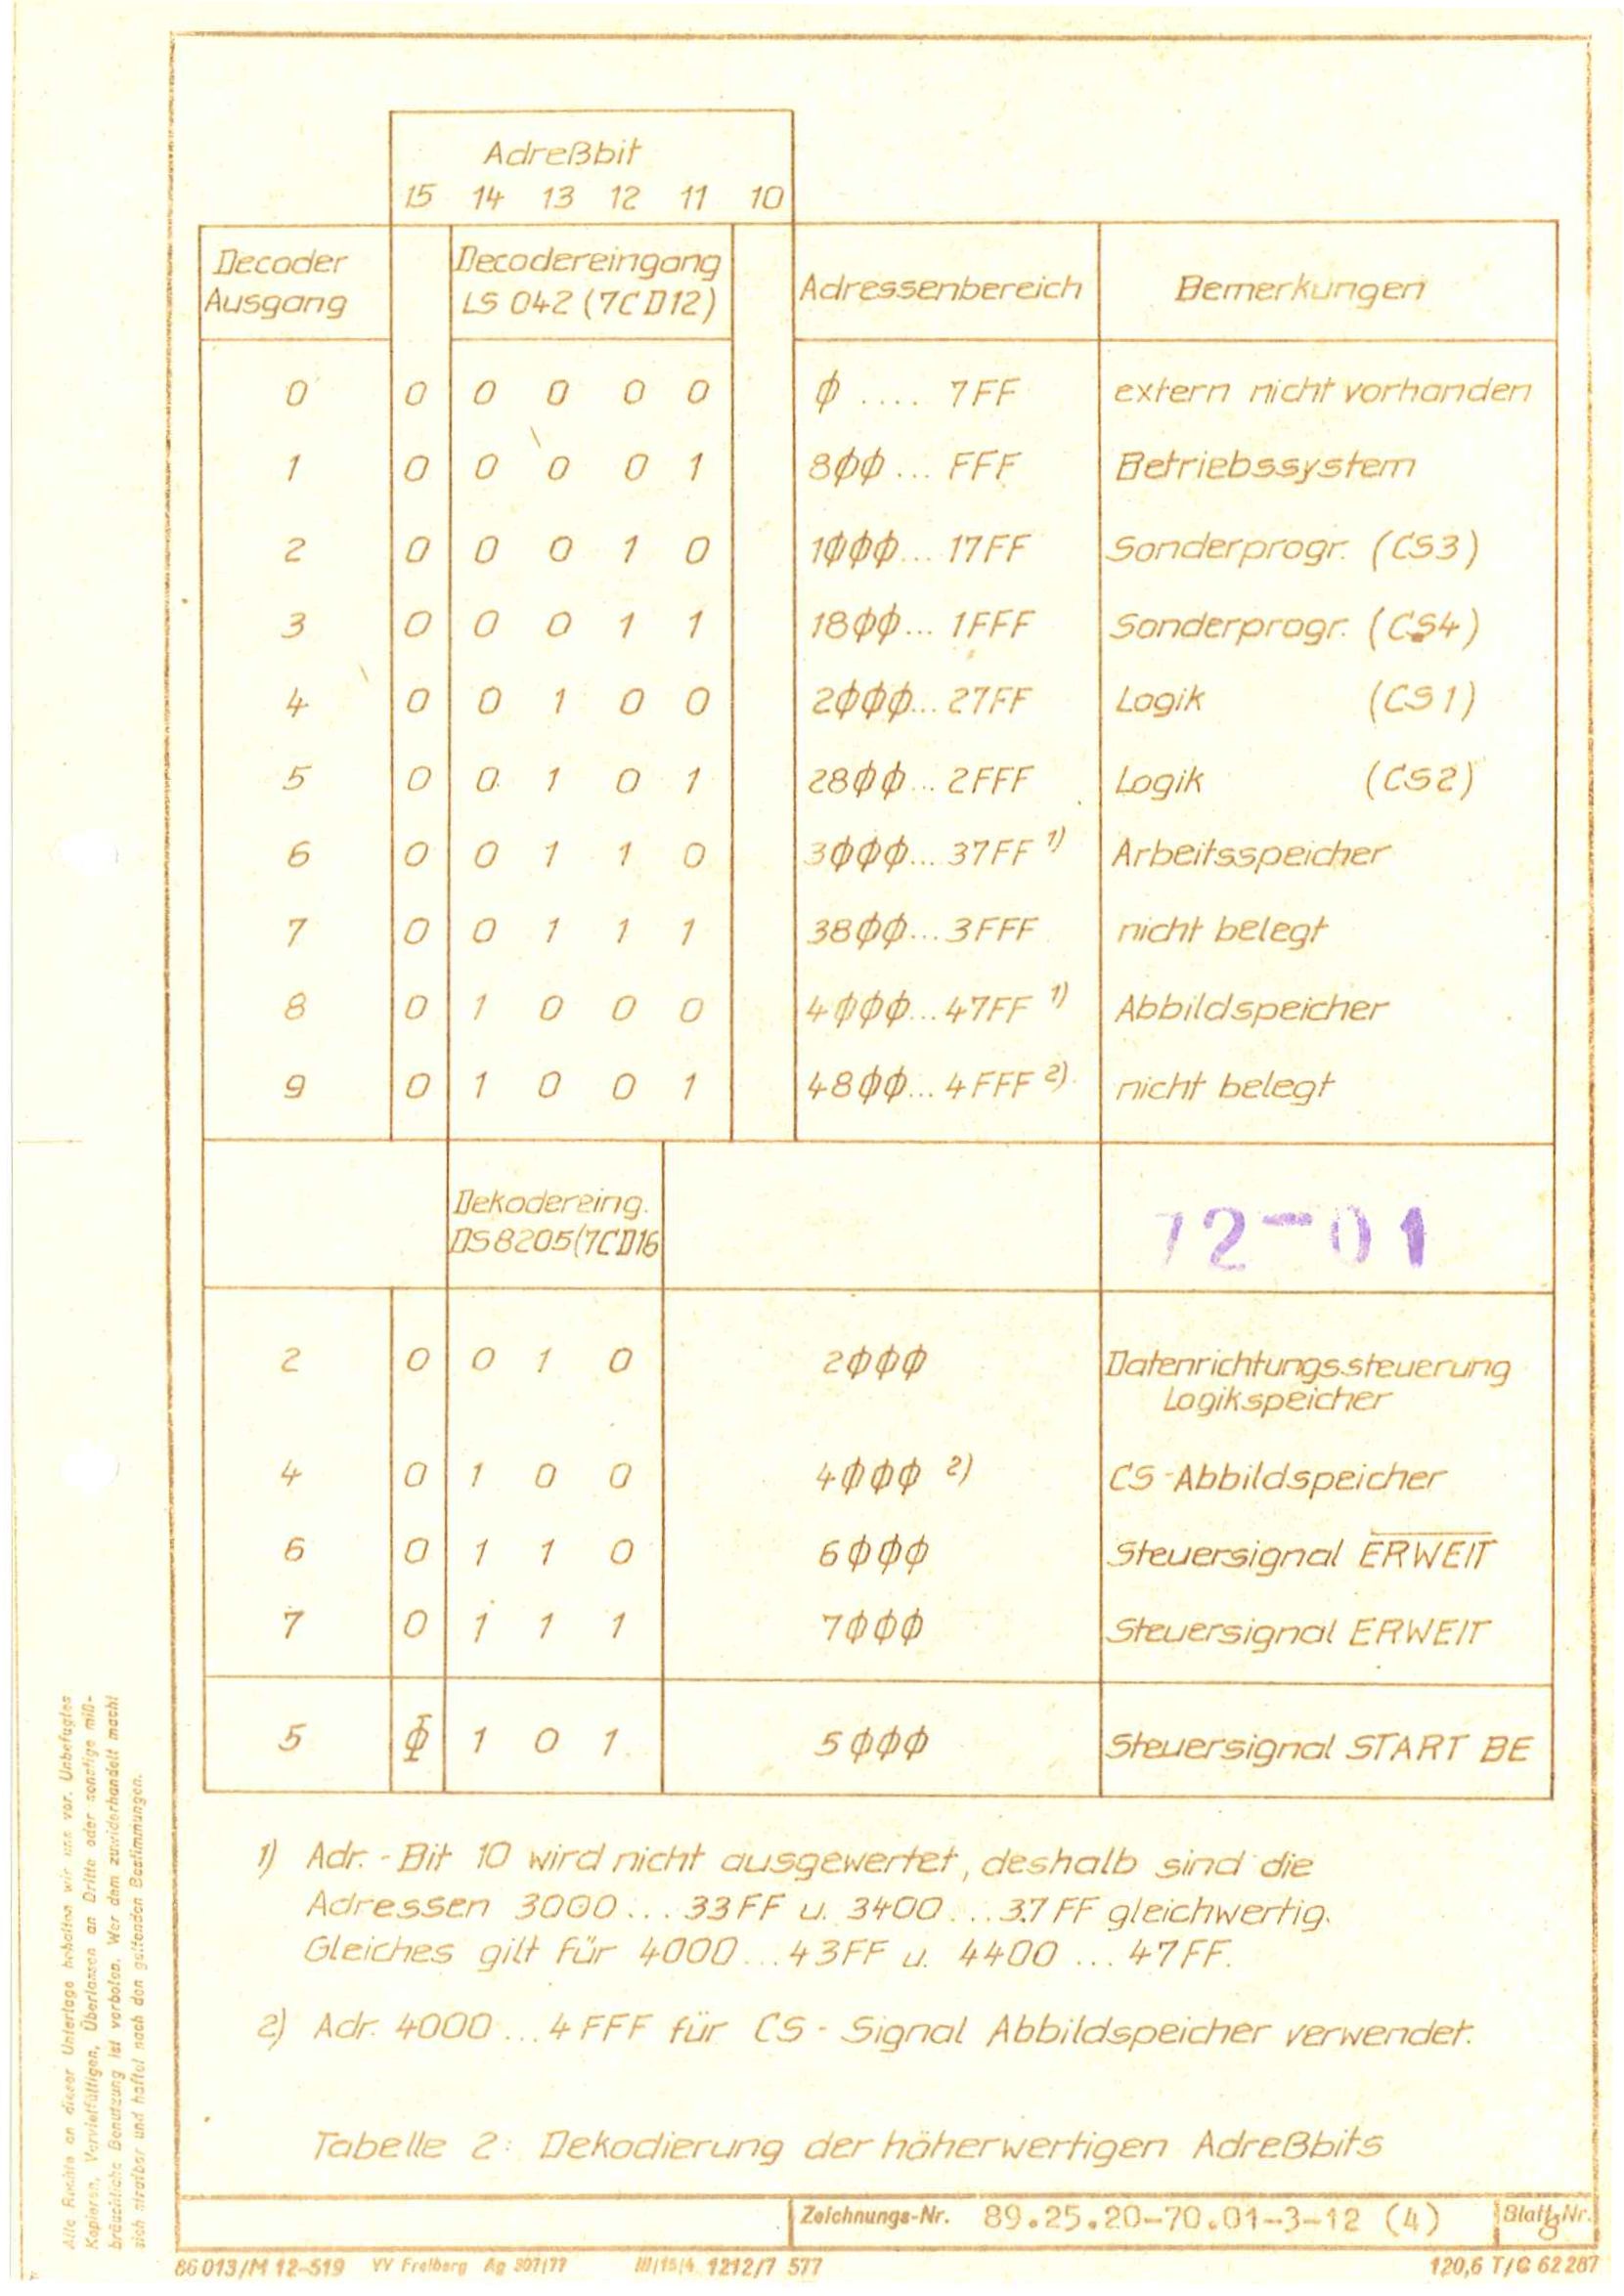 Adreßbit
15 14 13 12 11 10
Decoder Ausgang Decodereingang LS 042 (7CD12) Adressenbereich Bemerkungen
0 0 0 0 0 0 ϕ .... 7FF extern nicht vorhanden
1 0 0 0 0 1 8ϕϕ ... FFF Betriebssystem
2 0 0 0 1 0 1ϕϕϕ ... 17FF Sonderprogr. (CS3)
3 0 0 0 1 1 18ϕϕ ... 1FFF Sonderprogr. (CS4)
4 0 0 1 0 0 2ϕϕϕ ... 27FF Logik (CS1)
5 0 0 1 0 1 28ϕϕ ... 2FFF Logik (CS2)
6 0 0 1 1 0 3ϕϕϕ ... 37FF 1) Arbeitsspeicher
7 0 0 1 1 1 38ϕϕ ... 3FFF nicht belegt
8 0 1 0 0 0 4ϕϕϕ ... 47FF 1) Abbildspeicher
9 0 1 0 0 1 48ϕϕ ... 4FFF 2) nicht belegt
Dekodereing.
DS8205(7CD16
72-01
2 0 0 1 0 2ϕϕϕ Datenrichtungssteuerung
Logikspeicher
4 0 1 0 0 4ϕϕϕ 2) CS-Abbildspeicher
6 0 1 1 0 6ϕϕϕ Steuersignal E̅R̅W̅E̅I̅T̅
7 0 1 1 1 7ϕϕϕ Steuersignal ERWEIT
5 Φ 1 0 1 5ϕϕϕ Steuersignal START BE
1) Adr.-Bit 10 wird nicht ausgewertet, deshalb sind die
Adressen 3000 ... 33FF u. 3400 ... 37FF gleichwertig.
Gleiches gilt für 4000 ... 43FF u. 4400 ... 47FF.
2) Adr. 4000 ... 4FFF für CS-Signal Abbildspeicher verwendet.
Tabelle 2: Dekodierung der höherwertigen Adreßbits
Zeichnungs-Nr. 89.25.20-70.01-3-12 (4) Blatt-Nr.
86013/M 12-519 VV Freiberg Ag 307/77 III/15/4 1212/7 577 120,6 T/G 62 287
Alle Rechte an dieser Unterlage behalten wir uns vor. Unbefugtes
Kopieren, Vervielfältigen, Überlassen an Dritte oder sonstige miß-
bräuchliche Benutzung ist verboten. Wer dem zuwiderhandelt macht
sich strafbar und haftet nach den geltenden Bestimmungen.